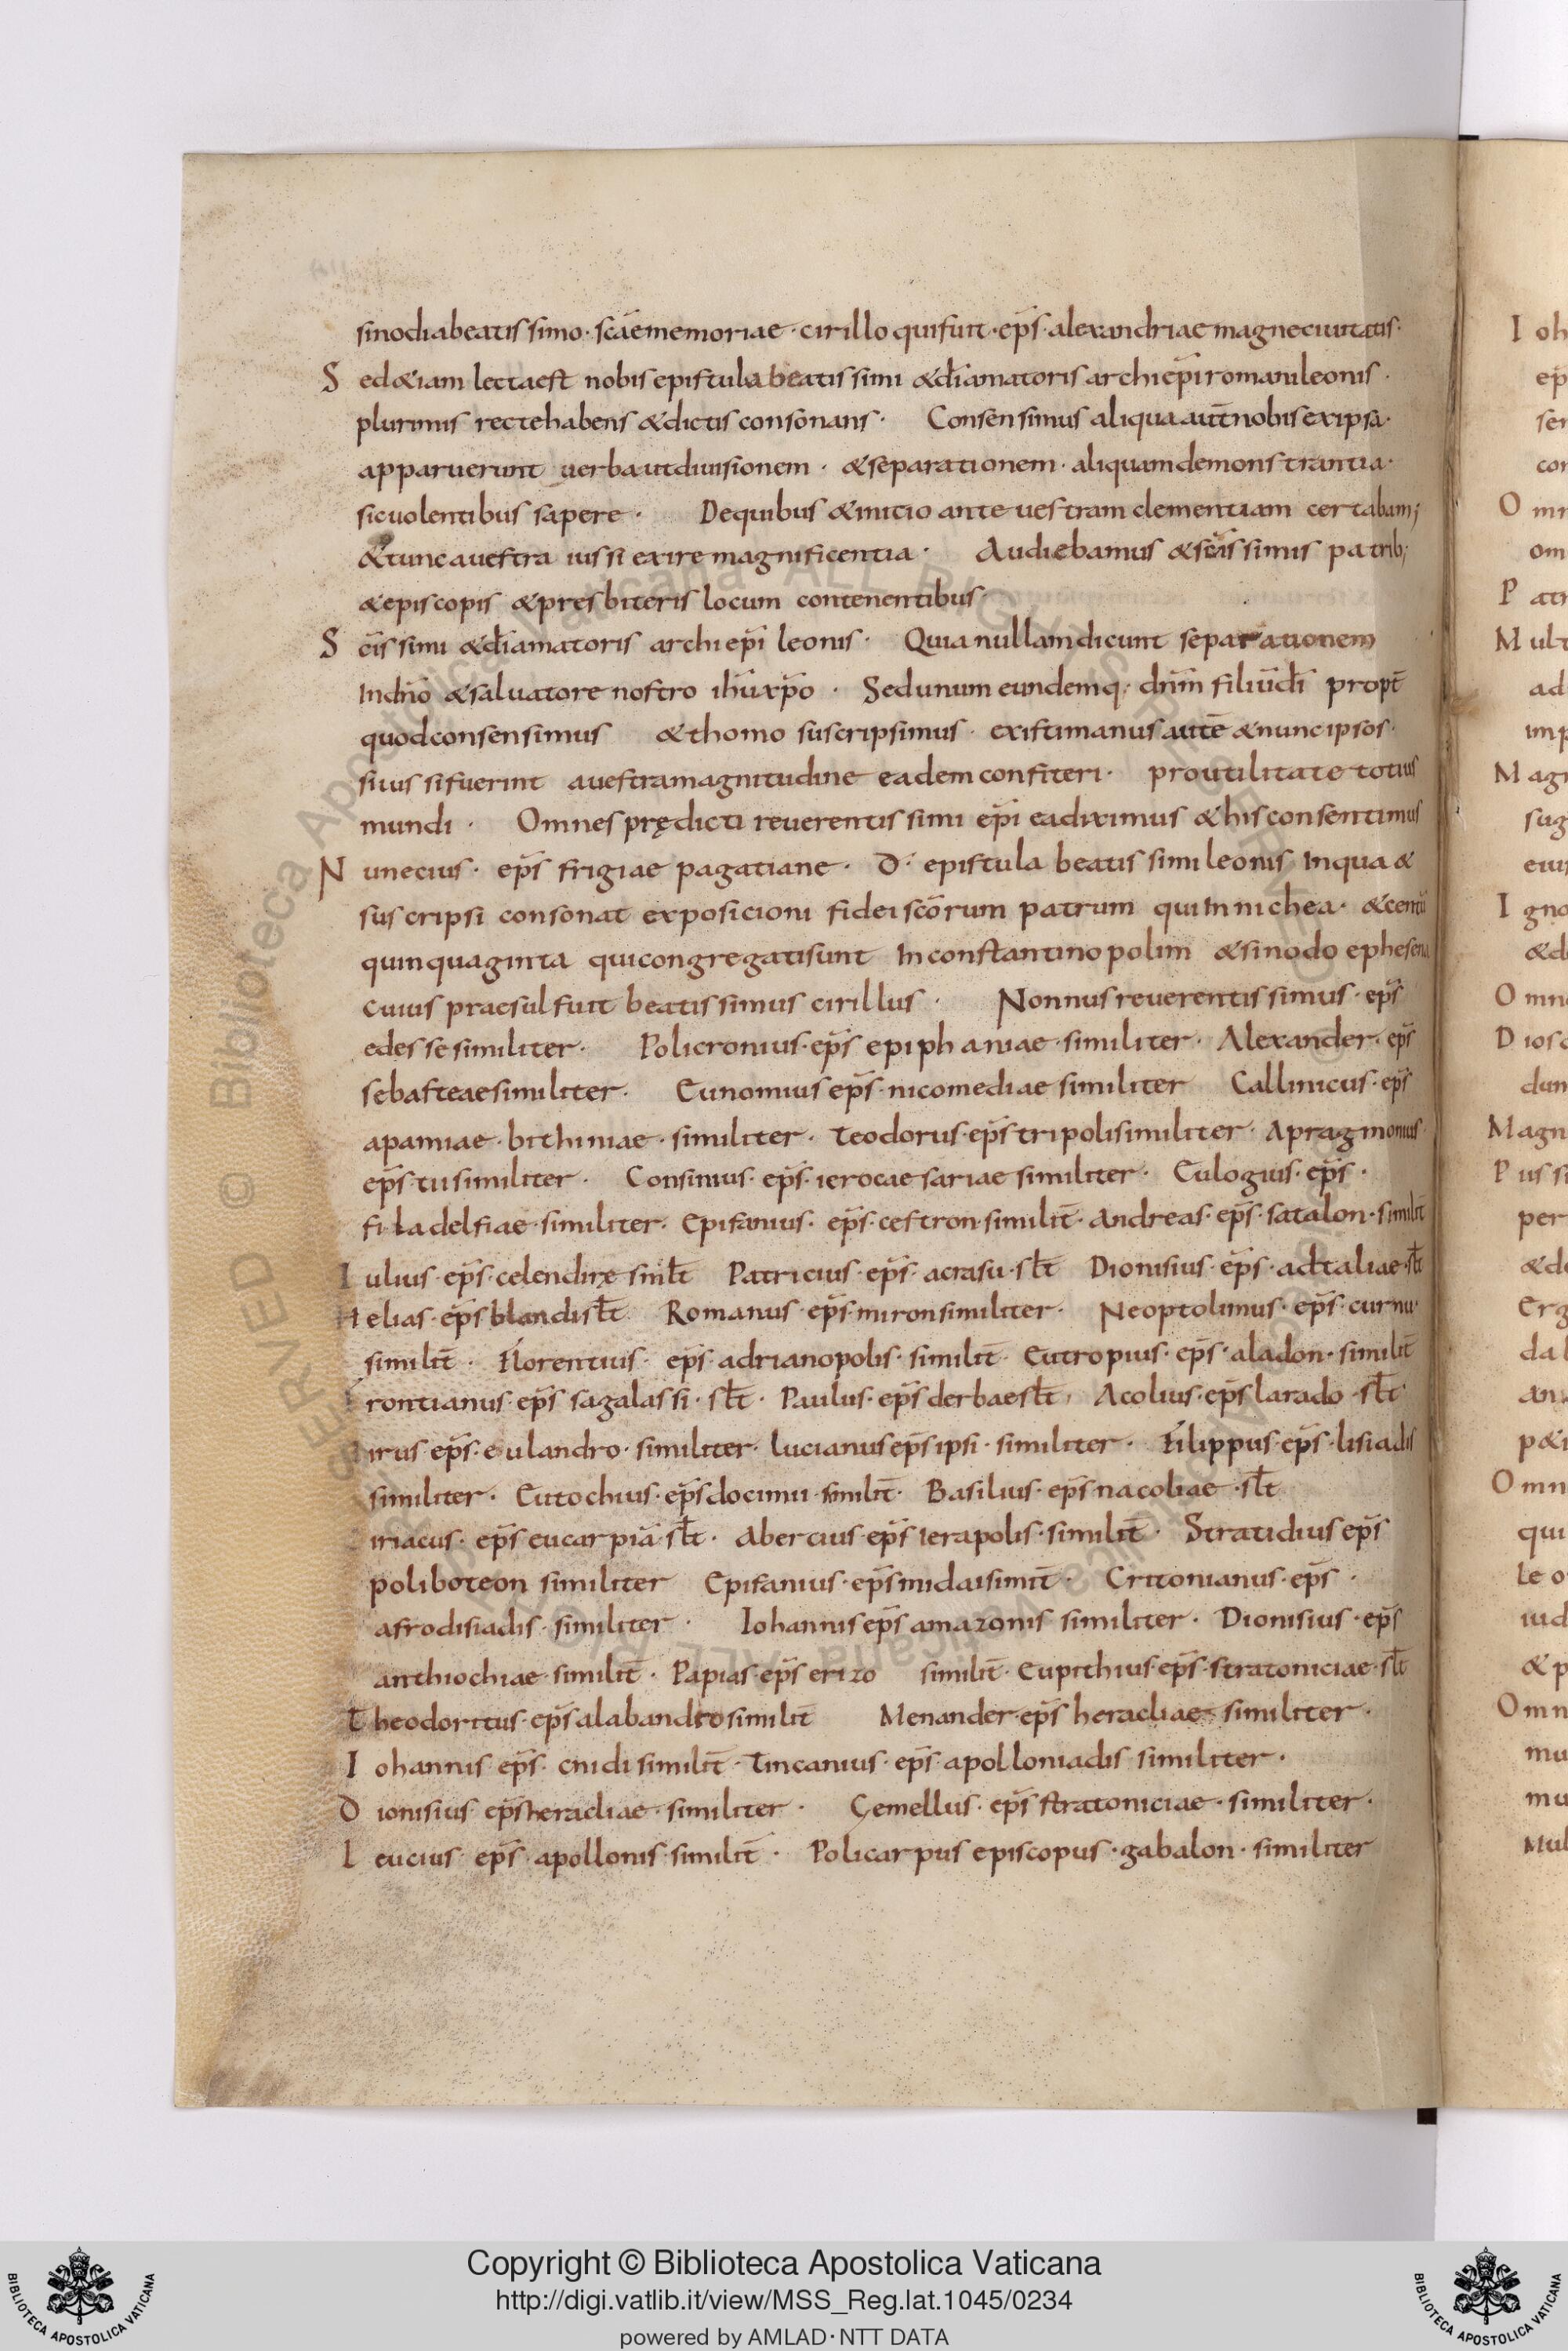 sinodi a beatissimo · scae memoriae · cirillo qui fuit · eps · alexandriae magne ciuitatis ·
S ed & iam lecta est nobis epistula beatissimi & di amatoris archi epi romani leonis ·
plurimis recte habens & dictis consonans · Consensimus aliqua aut nobis ex ipsa ·
apparuerunt uerba ut diuisionem · & separationem · aliquam demonstrantia ·
sic uolentibus sapere · De quibus & initio ante uestram clementiam certabam;
& tunc a uestra iussi exire magnificentia · Audiebamus & scissimis patrib;
& episcopis & presbiteris locum contenentibus
S cissimi & di amatoris archi epi leonis · Quia nullam dicunt separationem
In dno & saluatore nostro ihu xpo · Sed unum eundemq; dnm filiu di propt
quod consensimus & thomo suscripsimus · existimanus aute & nunc ipsos ·
si iussi fuerint a uestra magnitudine eadem confiteri · pro utilitate totius
mundi · Omnes prędicti reuerentissimi epi ea diximus & his consentimus
N unecius · eps frigiae pagatiane · D · epistula beatissimi leonis In qua &
suscripsi consonat exposicioni fidei scorum patrum qui In nichea · & centu
quinquaginta qui congregati sunt In constantinopolim & sinodo ephesena
cuius praesul fuit beatissimus cirillus · Nonnus reuerentissimus · eps
edesse similiter · Policronius · eps epiphaniae · similiter · Alexander · eps
sebasteae similiter · Eunomius eps · nicomediae similiter Callinicus · eps
apamiae · bithiniae · similiter · Teodorus · eps tripoli similiter · Apragmonius
eps tii similiter · Consinius · eps · ierocaesariae similiter · Eulogius · eps ·
filadelfiae · similiter · Epifanius · eps · cestron · similit · Andreas · eps · satalon · similit
I ulius · eps · celendirę smlt Patricius · eps · acrasu · slt Dionisius · eps · adtaliae · slt
H elias · eps blandi slt Romanus · eps · miron similiter · Neoptolimus · eps · curnu ·
similit · Florentius · eps · adrianopolis · similit Eutropius · eps · aladon · similit
F rontianus · eps sagalassi · slt · Paulus · eps derbae slt Acolius · eps larado slt
irus · eps · eulandro · similiter · lucianus eps ipsi · similiter · Filippus · eps · lisiadis
similiter · Eutochius · eps docimii similit · Basilius · eps nacoliae · slt
iriacus · eps eucarpia slt · Abercius · eps ierapolis · similit · Stratidius eps
poliboteon similiter Epifanius · eps midai simit · Critonianus · eps ·
afrodisiadis · similiter · Iohannis eps amazonis similiter · Dionisius · eps
anthiochiae · similit · Papias · eps erizo similit · Eupithius · eps · stratoniciae · slt
T heodoritus · eps alabandro similit Menander · eps heracliae similiter ·
I ohannis eps · cnidi similit · Tincanius · eps · apolloniadis similiter ·
D ionisius eps heracliae · similiter · Gemellus · eps stratoniciae · similiter ·
L eucius eps · apollonis · similit · Policarpus episcopus · gabalon · similiter
Copyright © Biblioteca Apostolica Vaticana
http://digi.vatlib.it/view/MSS_Reg.lat.1045/0234
powered by AMLAD · NTT DATA
BIBLIOTECA APOSTOLICA VATICANA
BIBLIOTECA APOSTOLICA VATICANA